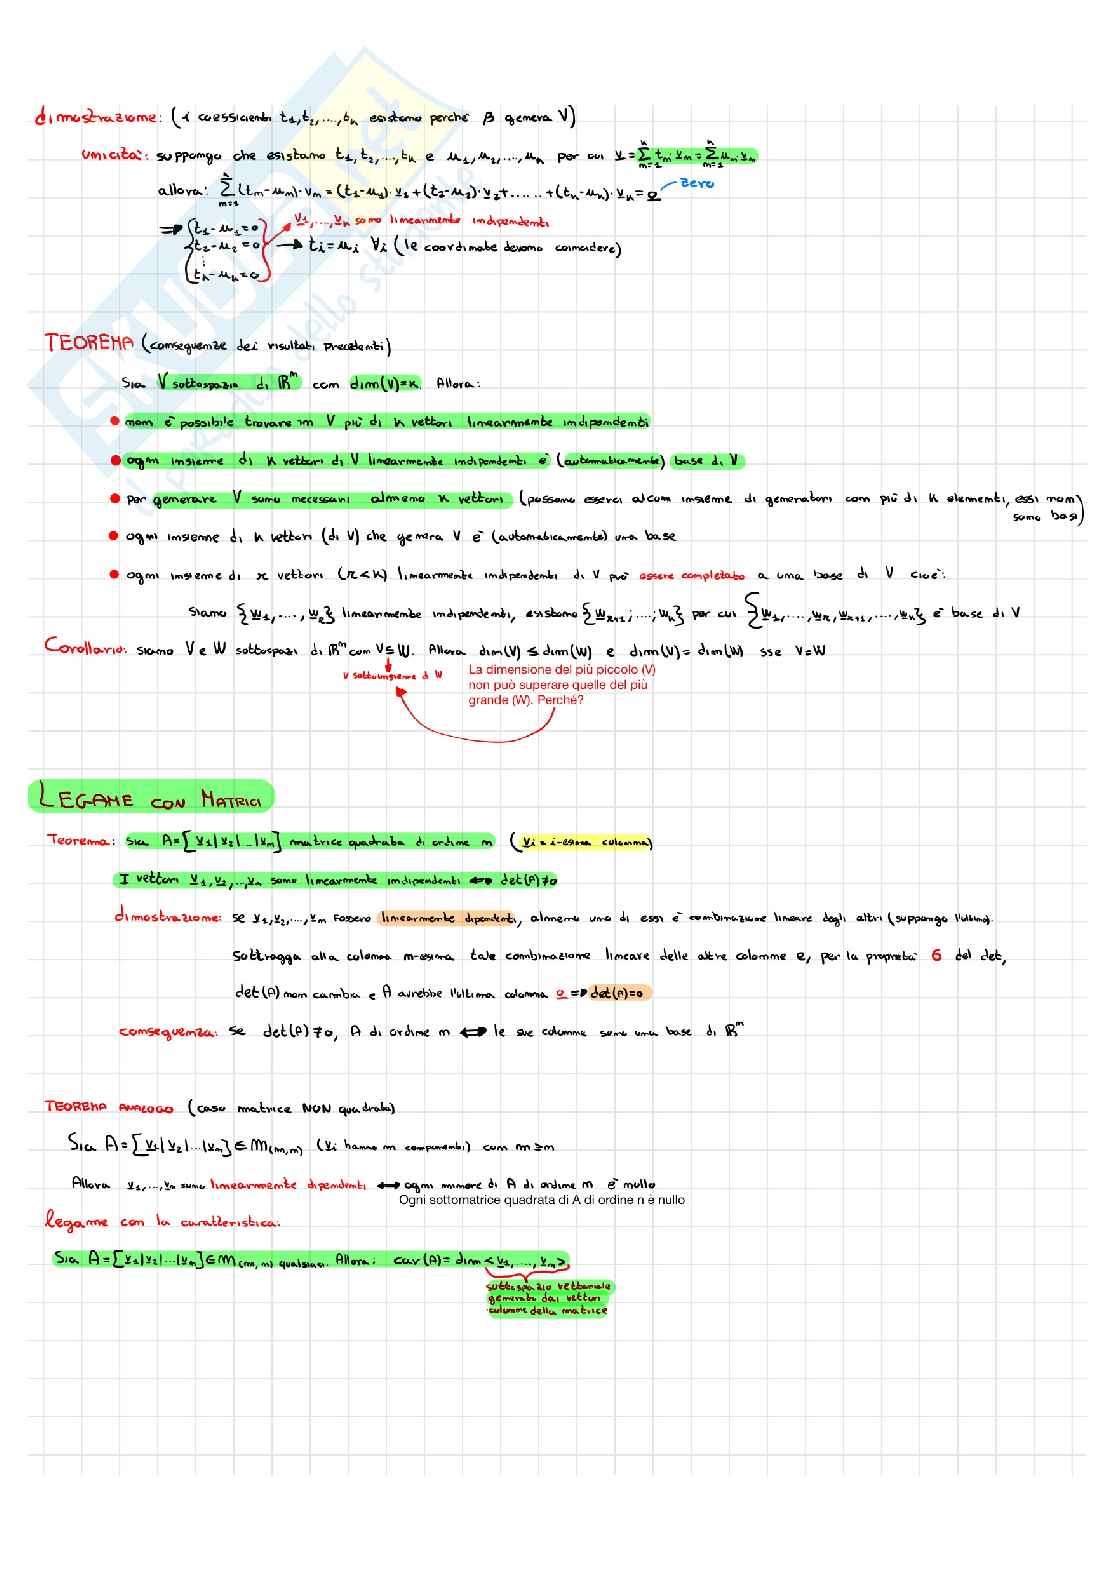 dimostrazione: (i coefficienti t₁,t₂,...,tₖ esistono perché β genera V)
unicità: suppongo che esistano t₁,t₂,...,tₖ e u₁,u₂,...,uₖ per cui v = Σ tₘ·vₘ = Σ uₘ·vₘ
allora: Σ (tₘ-uₘ)·vₘ = (t₁-u₁)·v₁+(t₂-u₂)·v₂+......+(tₖ-uₖ)·vₖ = 0 zero
⇒ { t₁-u₁=0 v₁,...,vₖ sono linearmente indipendenti
t₂-u₂=0 → tᵢ=uᵢ ∀i (le coordinate devono coincidere)
⋮
tₖ-uₖ=0
TEOREMA (conseguenze dei risultati precedenti)
Sia V sottospazio di ℝⁿ con dim(V)=k. Allora:
• non è possibile trovare in V più di k vettori linearmente indipendenti
• ogni insieme di k vettori di V linearmente indipendenti è (automaticamente) base di V
• per generare V sono necessari almeno k vettori (possono esserci alcuni insieme di generatori con più di k elementi, essi non
sono basi)
• ogni insieme di k vettori (di V) che genera V è (automaticamente) una base
• ogni insieme di r vettori (r<k) linearmente indipendenti di V può essere completato a una base di V cioè:
Siano {w₁,...,wᵣ} linearmente indipendenti, esistono {wᵣ₊₁;...;wₖ} per cui {w₁,...,wᵣ,wᵣ₊₁,...,wₖ} è base di V
Corollario: siano V e W sottospazi di ℝⁿ con V⊆W. Allora dim(V) ≤ dim(W) e dim(V)=dim(W) sse V=W
V sottoinsieme di W
La dimensione del più piccolo (V)
non può superare quelle del più
grande (W). Perché?
LEGAME CON MATRICI
Teorema: sia A=[v₁|v₂|...|vₙ] matrice quadrata di ordine n (vᵢ = i-esima colonna)
I vettori v₁,v₂,...,vₙ sono linearmente indipendenti ⟺ det(A)≠0
dimostrazione: se v₁,v₂,...,vₙ fossero linearmente dipendenti, almeno uno di essi è combinazione lineare degli altri (suppongo l'ultimo).
Sottraggo alla colonna n-esima tale combinazione lineare delle altre colonne e, per la proprietà 6 del det,
det(A) non cambia e A avrebbe l'ultima colonna 0 ⇒ det(A)=0
conseguenza: se det(A)≠0, A di ordine n ⟺ le sue colonne sono una base di ℝⁿ
TEOREMA ANALOGO (caso matrice NON quadrata)
Sia A=[v₁|v₂|...|vₙ]∈M(m,n) (vᵢ hanno m componenti) con m≥n
Allora v₁,...,vₙ sono linearmente dipendenti ⟺ ogni minore di A di ordine n è nullo
Ogni sottomatrice quadrata di A di ordine n è nullo
legame con la caratteristica:
Sia A=[v₁|v₂|...|vₙ]∈M(m,n) qualsiasi. Allora: car(A)=dim<v₁,...,vₙ>
sottospazio vettoriale
generato dai vettori
colonne della matrice